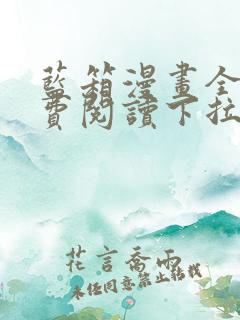 藍箱漫畫全
費閱讀下拉
花言喬雨
未经同意禁止转载